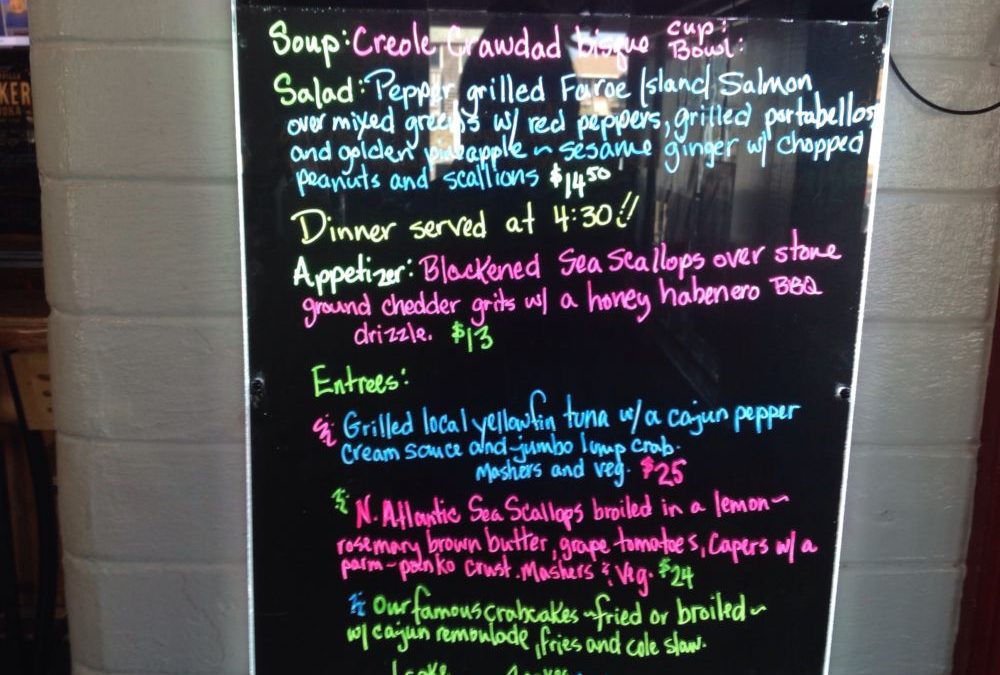 Soup: Creole Crawdad bisque cup:
Bowl:
Salad: Pepper grilled Faroe Island Salmon
over mixed greens w/ red peppers, grilled portabellos
and golden pineapple ~ sesame ginger w/ chopped
peanuts and scallions $14⁵⁰
Dinner served at 4:30!!
Appetizer: Blackened Sea Scallops over stone
ground chedder grits w/ a honey habenero BBQ
drizzle. $13
Entrees:
Grilled local yellowfin tuna w/ a cajun pepper
cream sauce and jumbo lump crab.
Mashers and veg. $25
N. Atlantic Sea Scallops broiled in a lemon~
rosemary brown butter, grape tomatoes, Capers w/ a
parm~panko crust. Mashers & Veg. $24
Our famous crabcakes ~fried or broiled~
w/ cajun remoulade, fries and cole slaw.
1 cake
KER